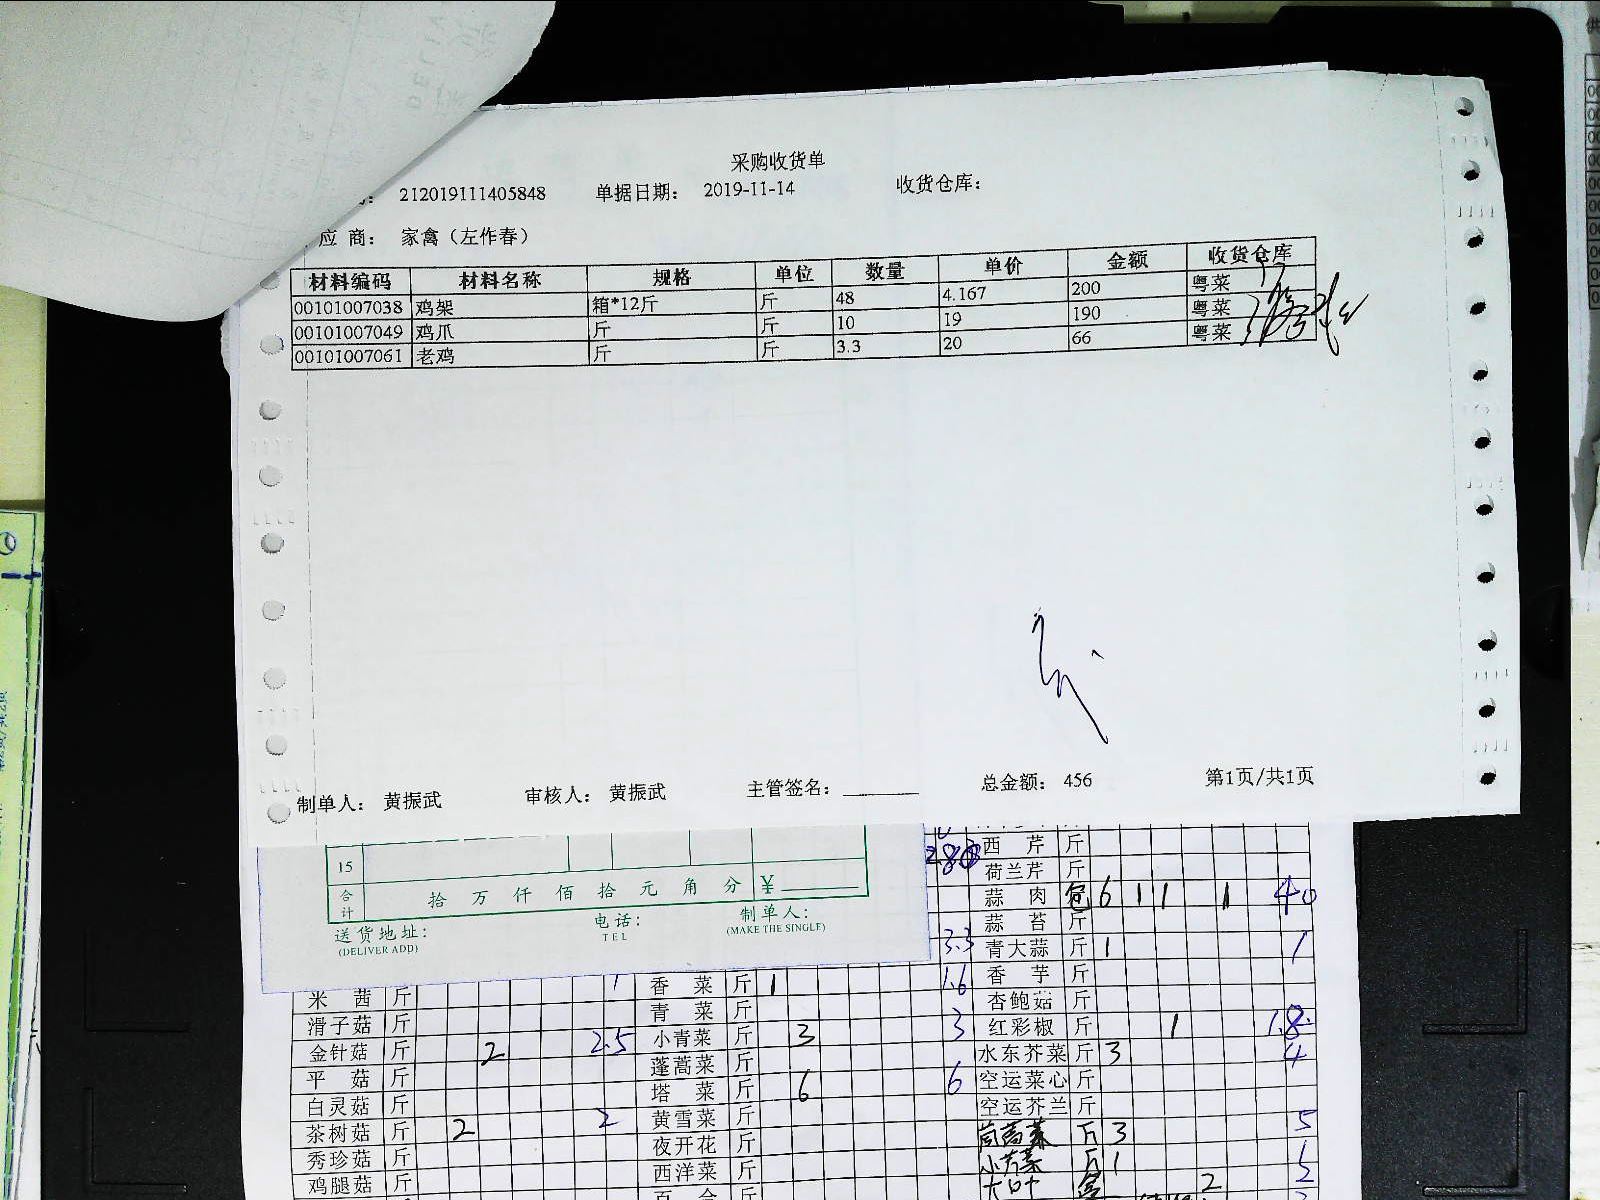 采购收货单
212019111405848 单据日期： 2019-11-14 收货仓库：
应 商： 家禽（左作春）
材料编码 材料名称 规格 单位 数量 单价 金额 收货仓库
00101007038 鸡架 箱*12斤 斤 48 4.167 200 粤菜
00101007049 鸡爪 斤 斤 10 19 190 粤菜
00101007061 老鸡 斤 斤 3.3 20 66 粤菜
制单人： 黄振武 审核人： 黄振武 主管签名： 总金额： 456 第1页/共1页
15
合计 拾 万 仟 佰 拾 元 角 分 ￥
送货地址： 电话： 制单人：
(DELIVER ADD) TEL (MAKE THE SINGLE)
西 芹 斤
荷兰芹 斤
蒜 肉 包 6 1 1 1 40
蒜 苔 斤
3.3 青大蒜 斤 1 1
米 茜 斤 1 香 菜 斤 1 1.6 香 芋 斤
青 菜 斤 杏鲍菇 斤
滑子菇 斤 小青菜 斤 3 3 红彩椒 斤 1 1.8
金针菇 斤 2 2.5 蓬蒿菜 斤 水东芥菜 斤 3 4
平 菇 斤 塔 菜 斤 6 6 空运菜心 斤
白灵菇 斤 黄雪菜 斤 空运芥兰 斤
茶树菇 斤 2 2 夜开花 斤 茼蒿菜 斤 3 5
秀珍菇 斤 西洋菜 斤 斤 1
鸡腿菇 斤 百 合 大叶 2